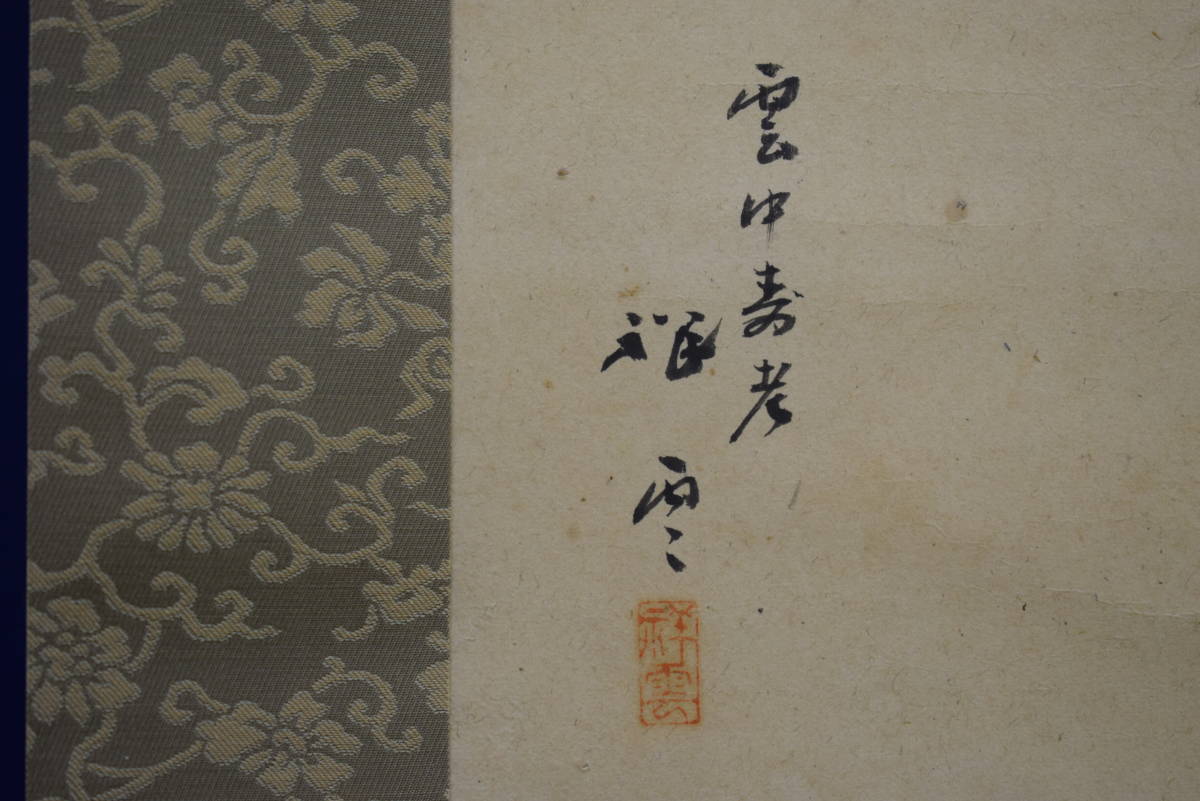 雲中寿考
祥雲
祥雲